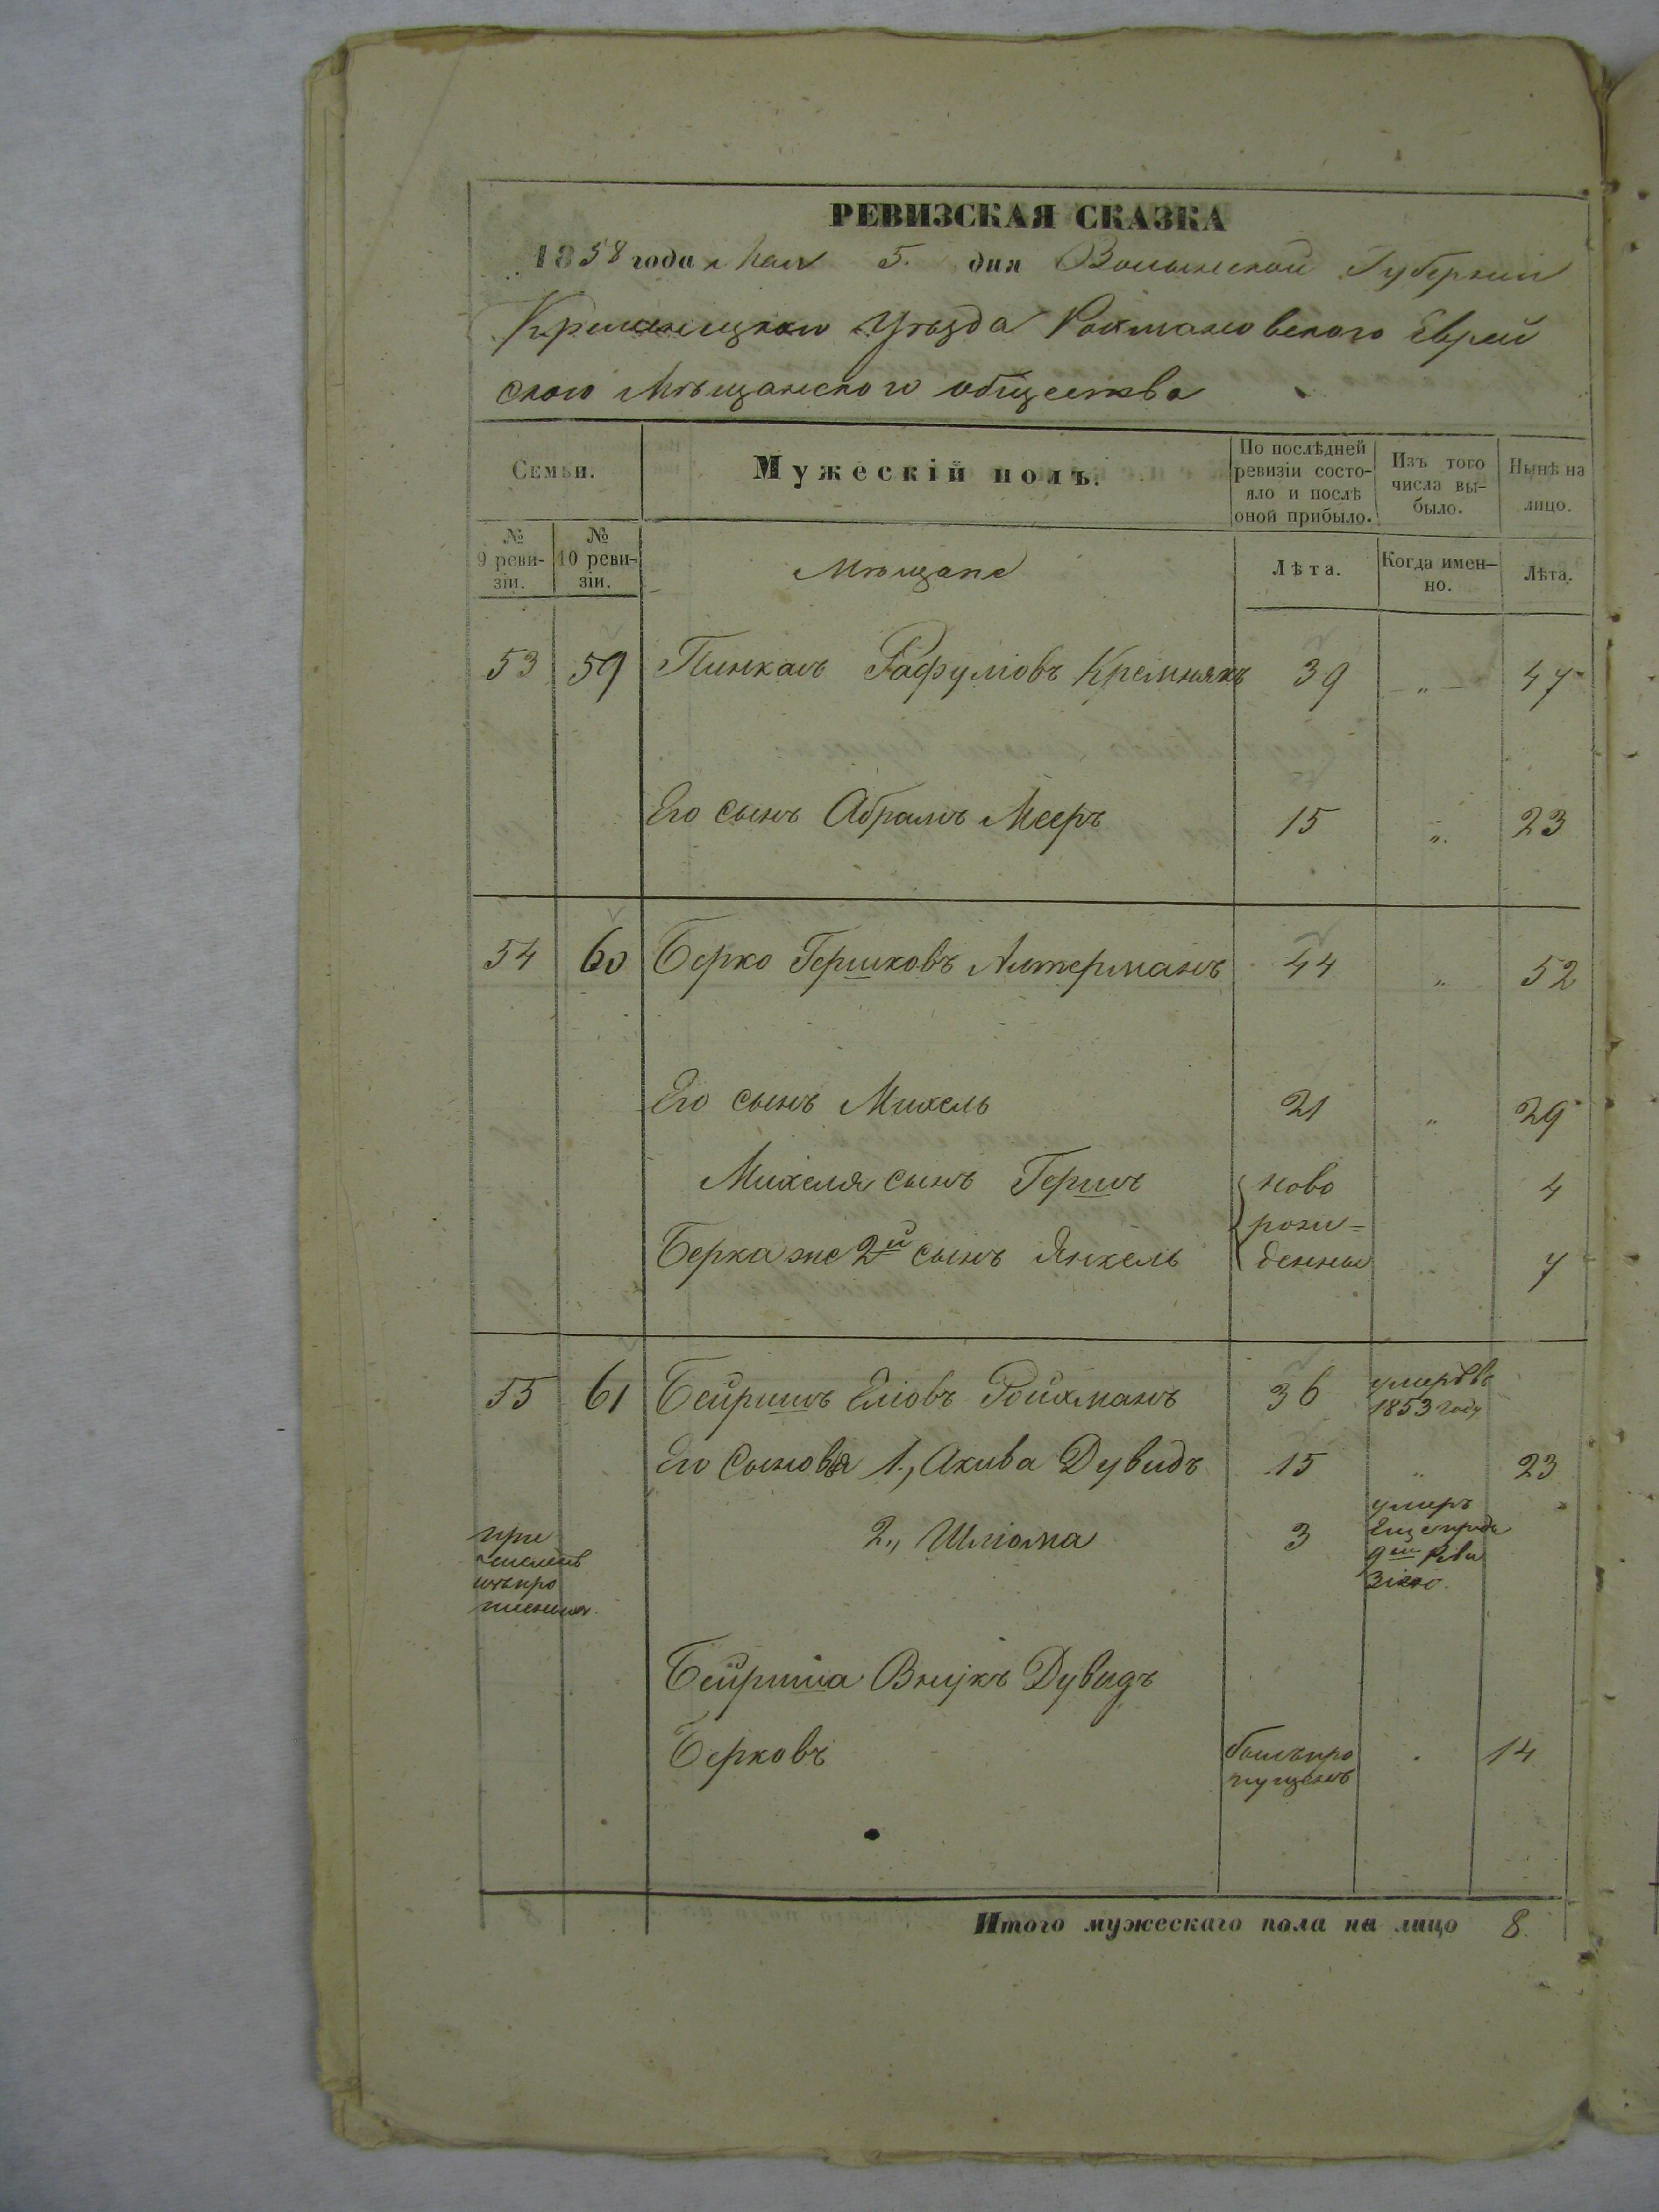 РЕВИЗСКАЯ СКАЗКА
1858 года Мая 5. дня Волынской Губернии
Кременецкого Уѣзда Рохмановского Еврей
ского Мѣщанского общества
Семьи.
Мужескій полъ.
По послѣдней
ревизіи состо-
яло и послѣ
оной прибыло.
Изъ того
числа вы-
было.
Нынѣ на
лицо.
№
9 реви-
зіи.
№
10 реви-
зіи.
Мѣщане
Лѣта.
Когда имен-
но.
Лѣта.
53 59 Пинкасъ Рафуловъ Кремнякъ 39 „ 47
Его сынъ Абрамъ Мееръ 15 „ 23
54 60 Берко Гершковъ Алтерманъ 44 „ 52
Его сынъ Михель 21 „ 29
Михеля сынъ Гершъ ново 4
рожи=
Берка же 2й сынъ Янкель денные 7
55 61 Бейришъ Еліовъ Ройхманъ 36 умеръ въ
1853 году
Его Сыновья 1., Акива Дувидъ 15 „ 23
2., Шліома 3 умеръ
Еще предъ
9ой Реви
зіею.
при
изъ про
Бейриша Внукъ Дувидъ
Берковъ былъ про 14
пущенъ
Итого мужескаго пола на лицо 8.